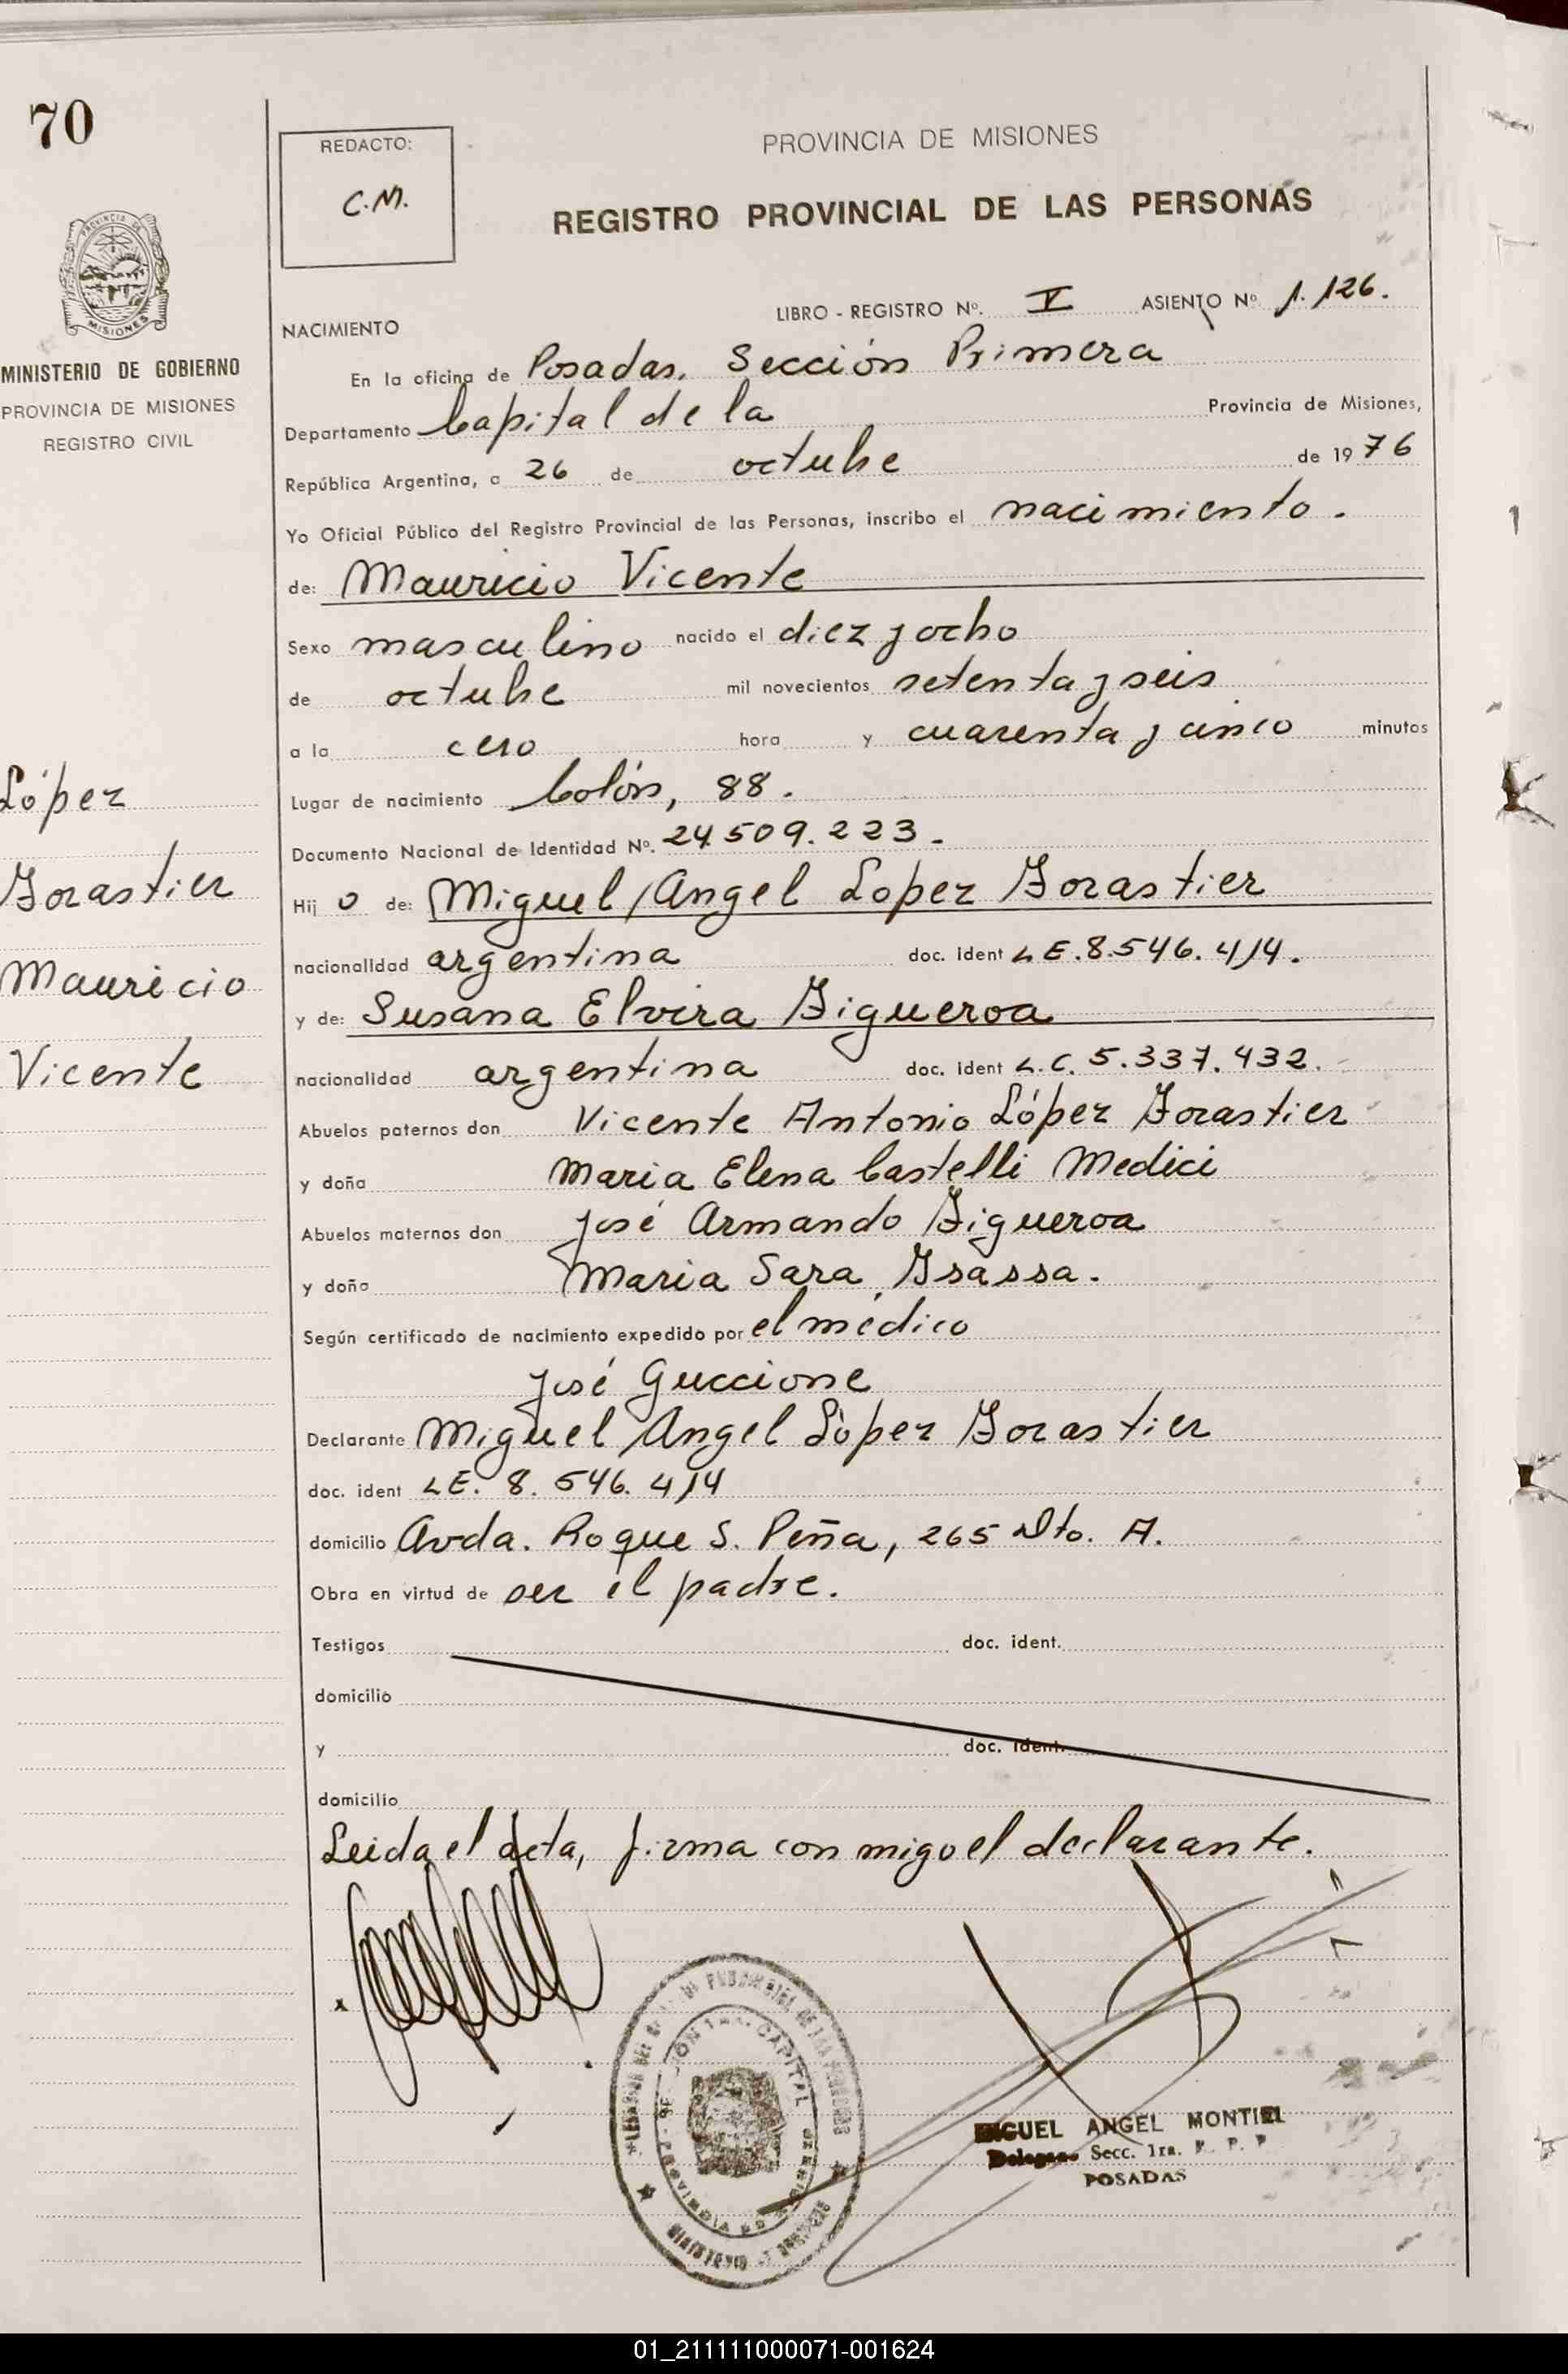 70
REDACTO:
C.M.
PROVINCIA DE MISIONES
REGISTRO PROVINCIAL DE LAS PERSONAS
MINISTERIO DE GOBIERNO
PROVINCIA DE MISIONES
REGISTRO CIVIL
LIBRO - REGISTRO Nº. V ASIENTO Nº 1.126.
NACIMIENTO
En la oficina de Posadas. Sección Primera
Departamento Capital de la Provincia de Misiones,
República Argentina, a 26 de octubre de 1976
Yo Oficial Público del Registro Provincial de las Personas, inscribo el nacimiento.
de: Mauricio Vicente
Sexo masculino nacido el diez y ocho
de octubre mil novecientos setenta y seis
a la cero hora y cuarenta y cinco minutos
Lugar de nacimiento Colón, 88.
Documento Nacional de Identidad Nº. 24.509.223.
Hijo de: Miguel Angel Lopez Forastier
nacionalidad argentina doc. ident L.E.8.546.414.
y de: Susana Elvira Figueroa
nacionalidad argentina doc. ident L.C. 5.337.432.
Abuelos paternos don Vicente Antonio López Forastier
y doña Maria Elena Castelli Medici
Abuelos maternos don José Armando Figueroa
y doña Maria Sara Grassa.
Según certificado de nacimiento expedido por el médico
José Guccione
Declarante Miguel Angel López Forastier
doc. ident L.E. 8.546.414
domicilio Avda. Roque S. Peña, 265 Dto. A.
Obra en virtud de ser el padre.
Testigos doc. ident.
domicilio
y doc. ident.
domicilio
Leida el acta, firma con migo el declarante.
López
Forastier
Mauricio
Vicente
MIGUEL ANGEL MONTIEL
Secc. 1ra.
POSADAS
01_211111000071-001624